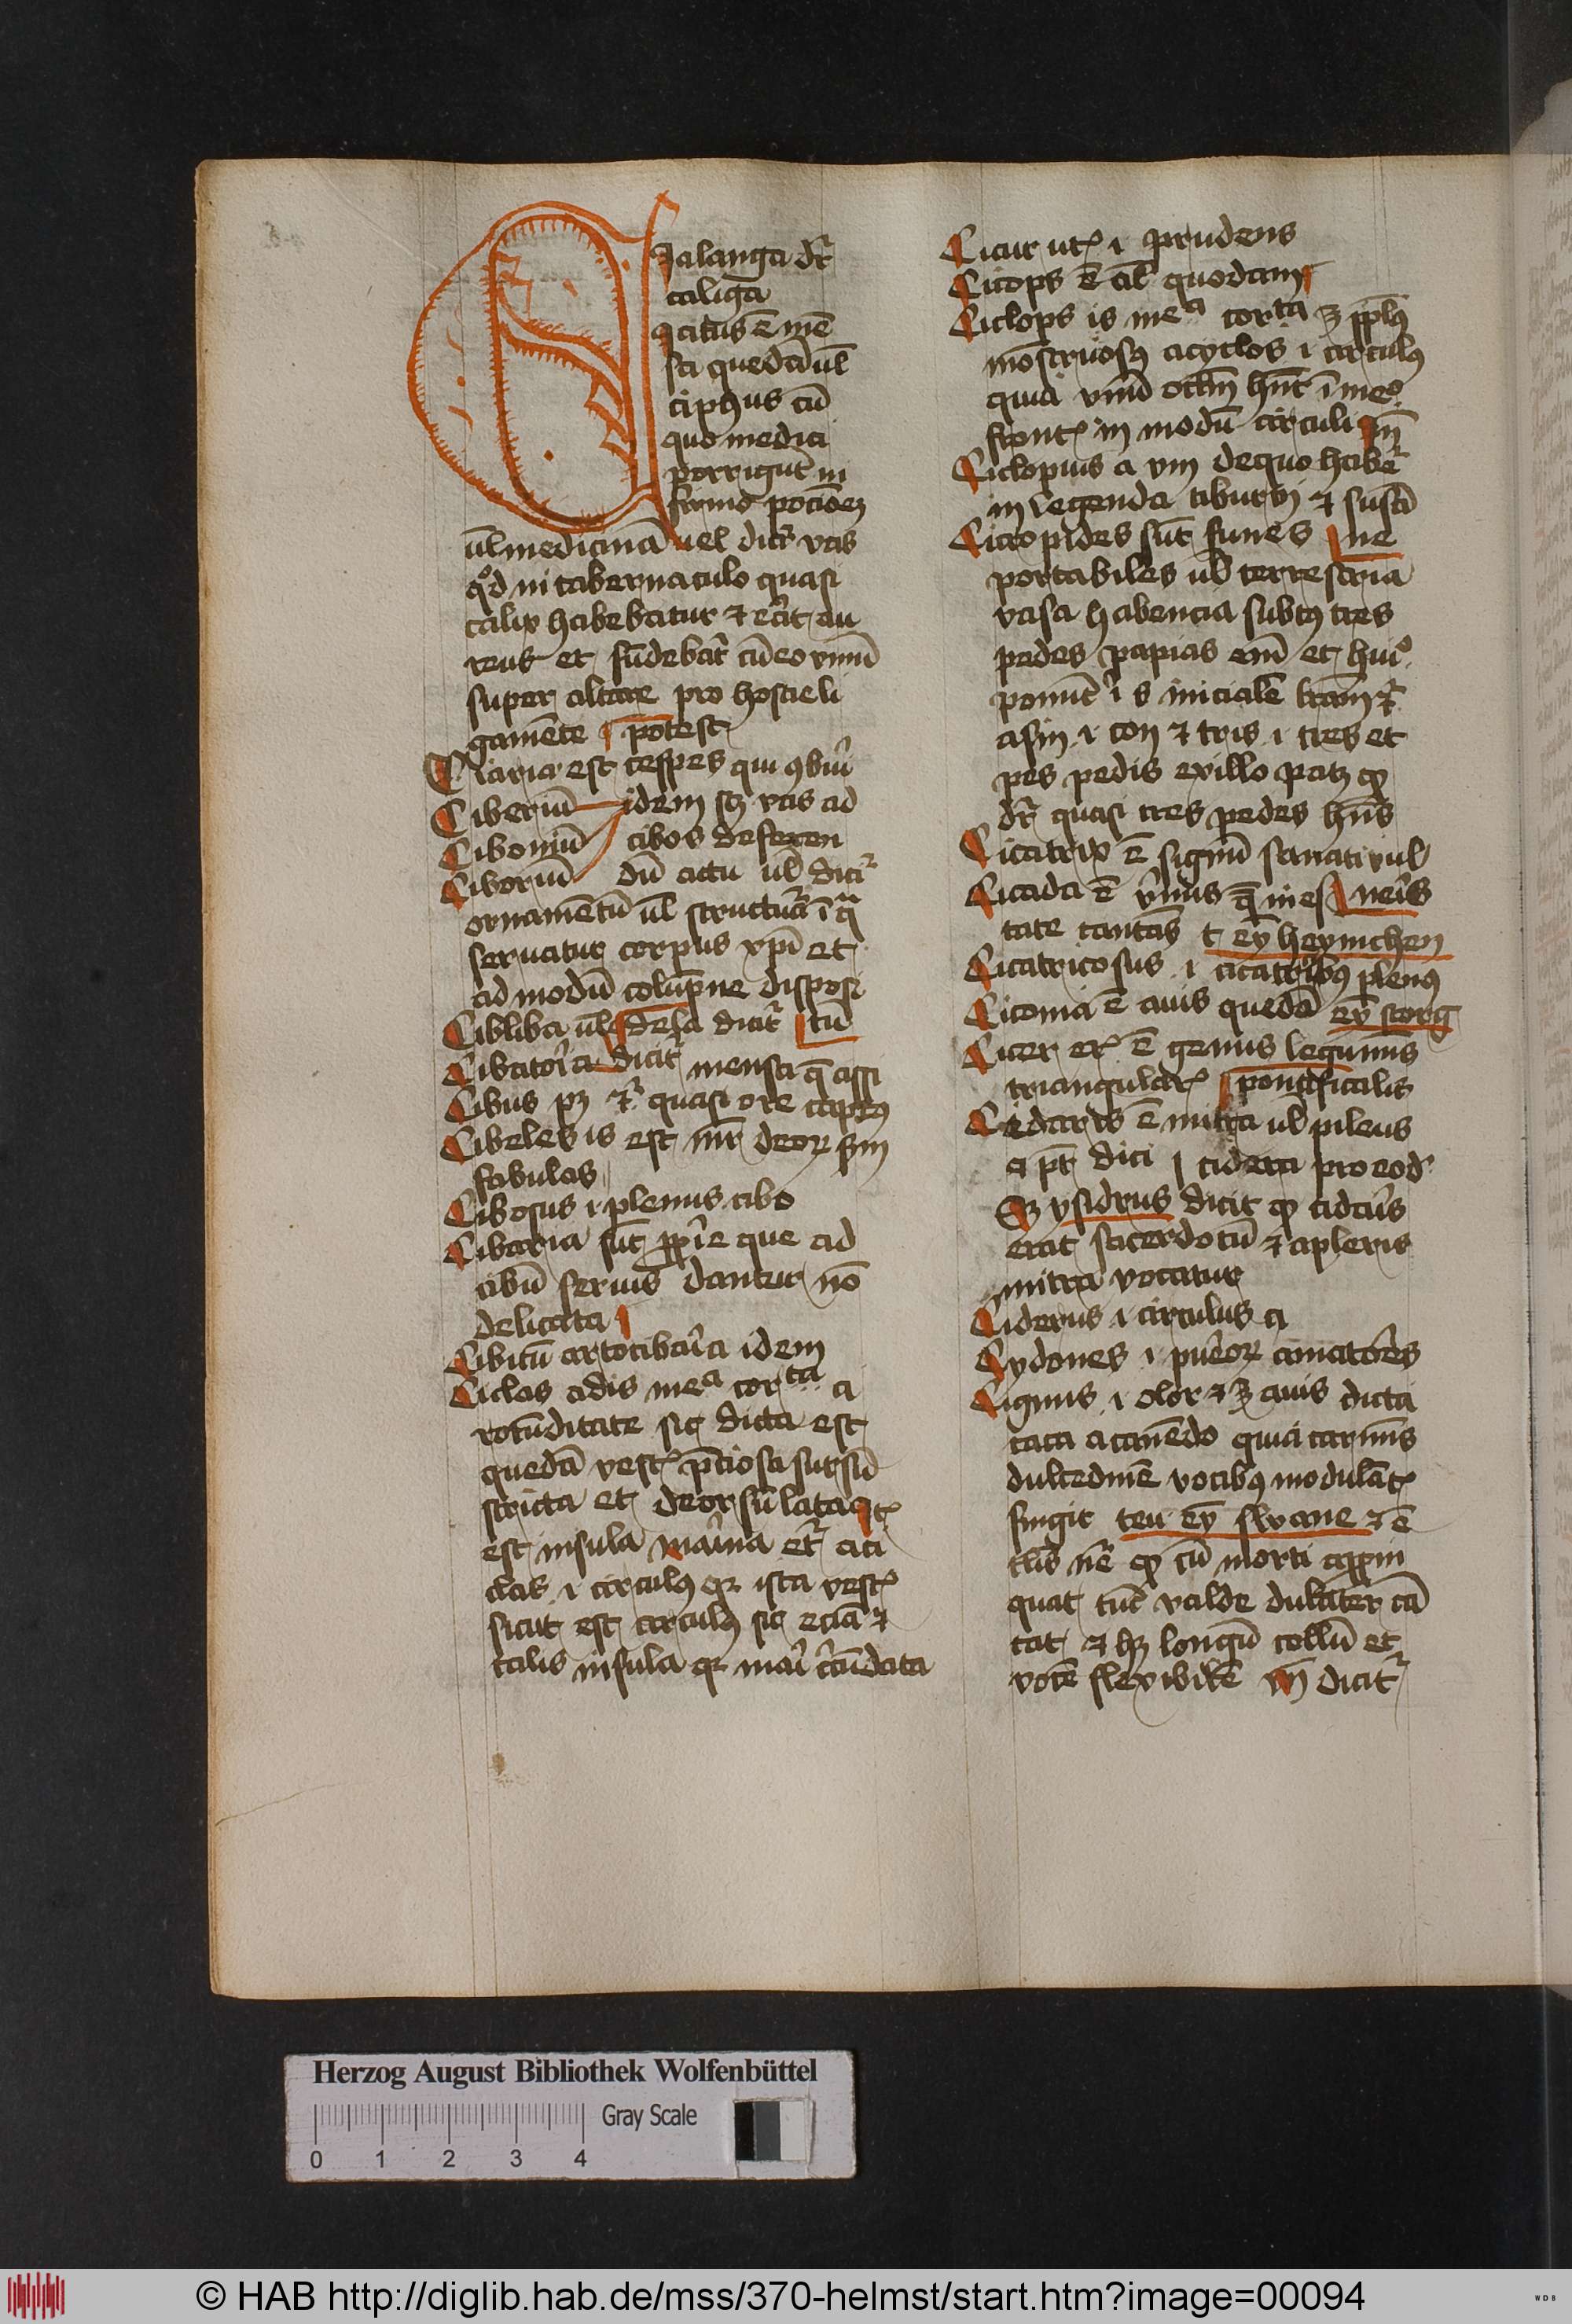 Cialanga dr̄
caliga
Ciatus ē mē
sa quedā ul̄
ciphus cū
quo medici
porrigūt in
firmo pocionē
ul̄ medicinā uel dicr̄ vas
qd̓ in tabernaculo quasi
calix habebatur ⁊ erāt au
reus et fūdebat̄ cū eo vinū
super altare pro hostie li
gamēte potest
Ciaria est cespes qui
Ciberiū idem sꝫ vas ad
Ciboniū cibos deferen
Ciboriū dū actu ul̄ dicit̄
ornamētū ul̄ structura ī qͣ
seruatur corpus xp̄i et
ad modū colūpne disposi
Cibliba ul̄ dela dicit̄ tū
Cibatoria dicit̄ mensa q̄ assi
Cibus pꝫ ⁊ quasi ore captꝰ
Cibeles is est mr̄ deoꝝ
fabulas
Cibosus i plenus cibo
Cibaria sūt ꝓprie que ad
cibū seruis dantur nō
delicata
Cibitū artocibaria idem
Ciclas adis meͣ corͭᵃ a
rotūditate sic dicta est
quedā vest̄ p̄ciosa sursū
stricta et deorsū lata
est insula marina et̄ a ci
clas i circulꝰ qꝛ ista vest̄
sicut est circulꝰ sic eciā ⁊
talis insula qꝛ mari circūdata
Cicur ut̄ i prudens
Cicops ē al̄ quodam
Ciclops is meͣ corͭᵃ ꝫ ppl̄s
mōstruosꝰ a cyclos i circulꝰ
quia vnū oclm̄ hn̄t ī meᵒ
front̄ in modū circuli
Ciclopius a vm de quo habet̄
in legenda tiburcij ⁊ susā
Citropides sūt funes ne
portabiles ul̄ terrestria
vasa habencia subtꝰ tres
pedes papias em̄ et huiᵒ
ponūt ī s inicialē lram̄ ⁊
asin i con ⁊ tris i tres et
pes pedis ex illo patꝫ ꝙ
dr̄ quasi tres pedes hn̄s
Cicatrix ē signū sanati vul
Cicada ē vermis q̄ in es neris
tate cantās t ey heymchen
Cicatricosus i cicatricibꝰ plenꝰ
Ciconia ē auis quedā ey storg
Cicer er̄ ē genus leguminis
triangular̄ pontificalis
Cidaris ē mitra ul̄ pileus
a pt̄ dici cidera pro eod̄
Sꝫ ysidrus dicit ꝙ cidaris
erat sacerdotū ⁊ a pleris
mitra vocatur
Ciderus i circulus a
Cydones i pueroꝝ amatores
Cignus i olor ⁊ ꝫ auis dicta
cata a canēdo quia carminis
dulcedinē vocibꝰ modulat̄
fingit teu ey swane ⁊ ē
ꝙ cū morti appin
quat tūc valde dulciter cā
tat ⁊ hꝫ longū collū et
vocē flexibilē vn̄ dicit̄
Herzog August Bibliothek Wolfenbüttel
Gray Scale
0 1 2 3 4
© HAB http://diglib.hab.de/mss/370-helmst/start.htm?image=00094